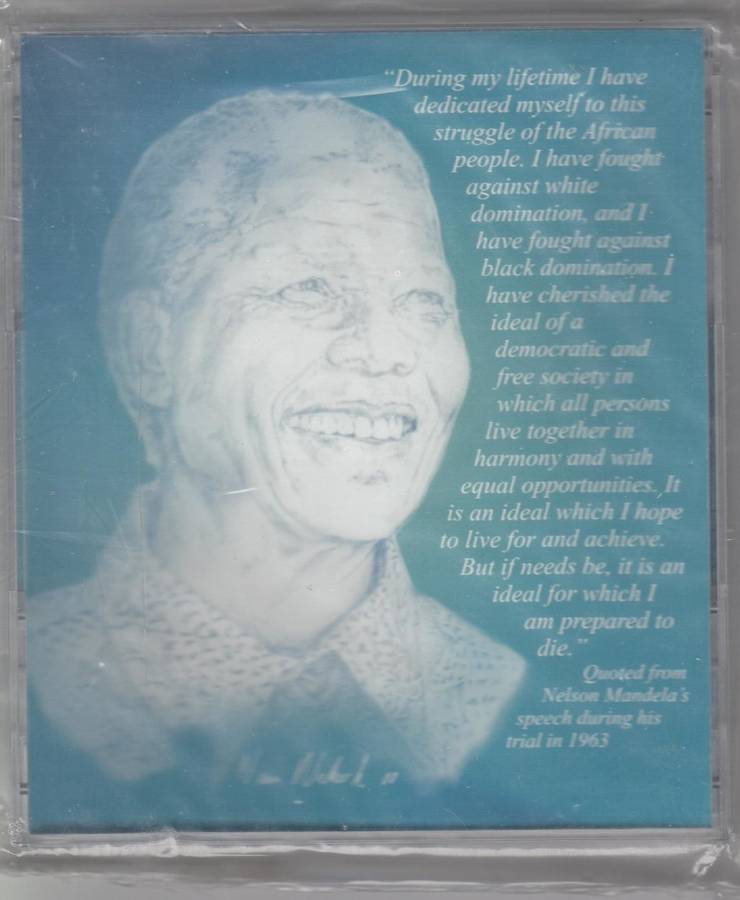 “During my lifetime I have
dedicated myself to this
struggle of the African
people. I have fought
against white
domination, and I
have fought against
black domination. I
have cherished the
ideal of a
democratic and
free society in
which all persons
live together in
harmony and with
equal opportunities. It
is an ideal which I hope
to live for and achieve.
But if needs be, it is an
ideal for which I
am prepared to
die.”
Quoted from
Nelson Mandela's
speech during his
trial in 1963